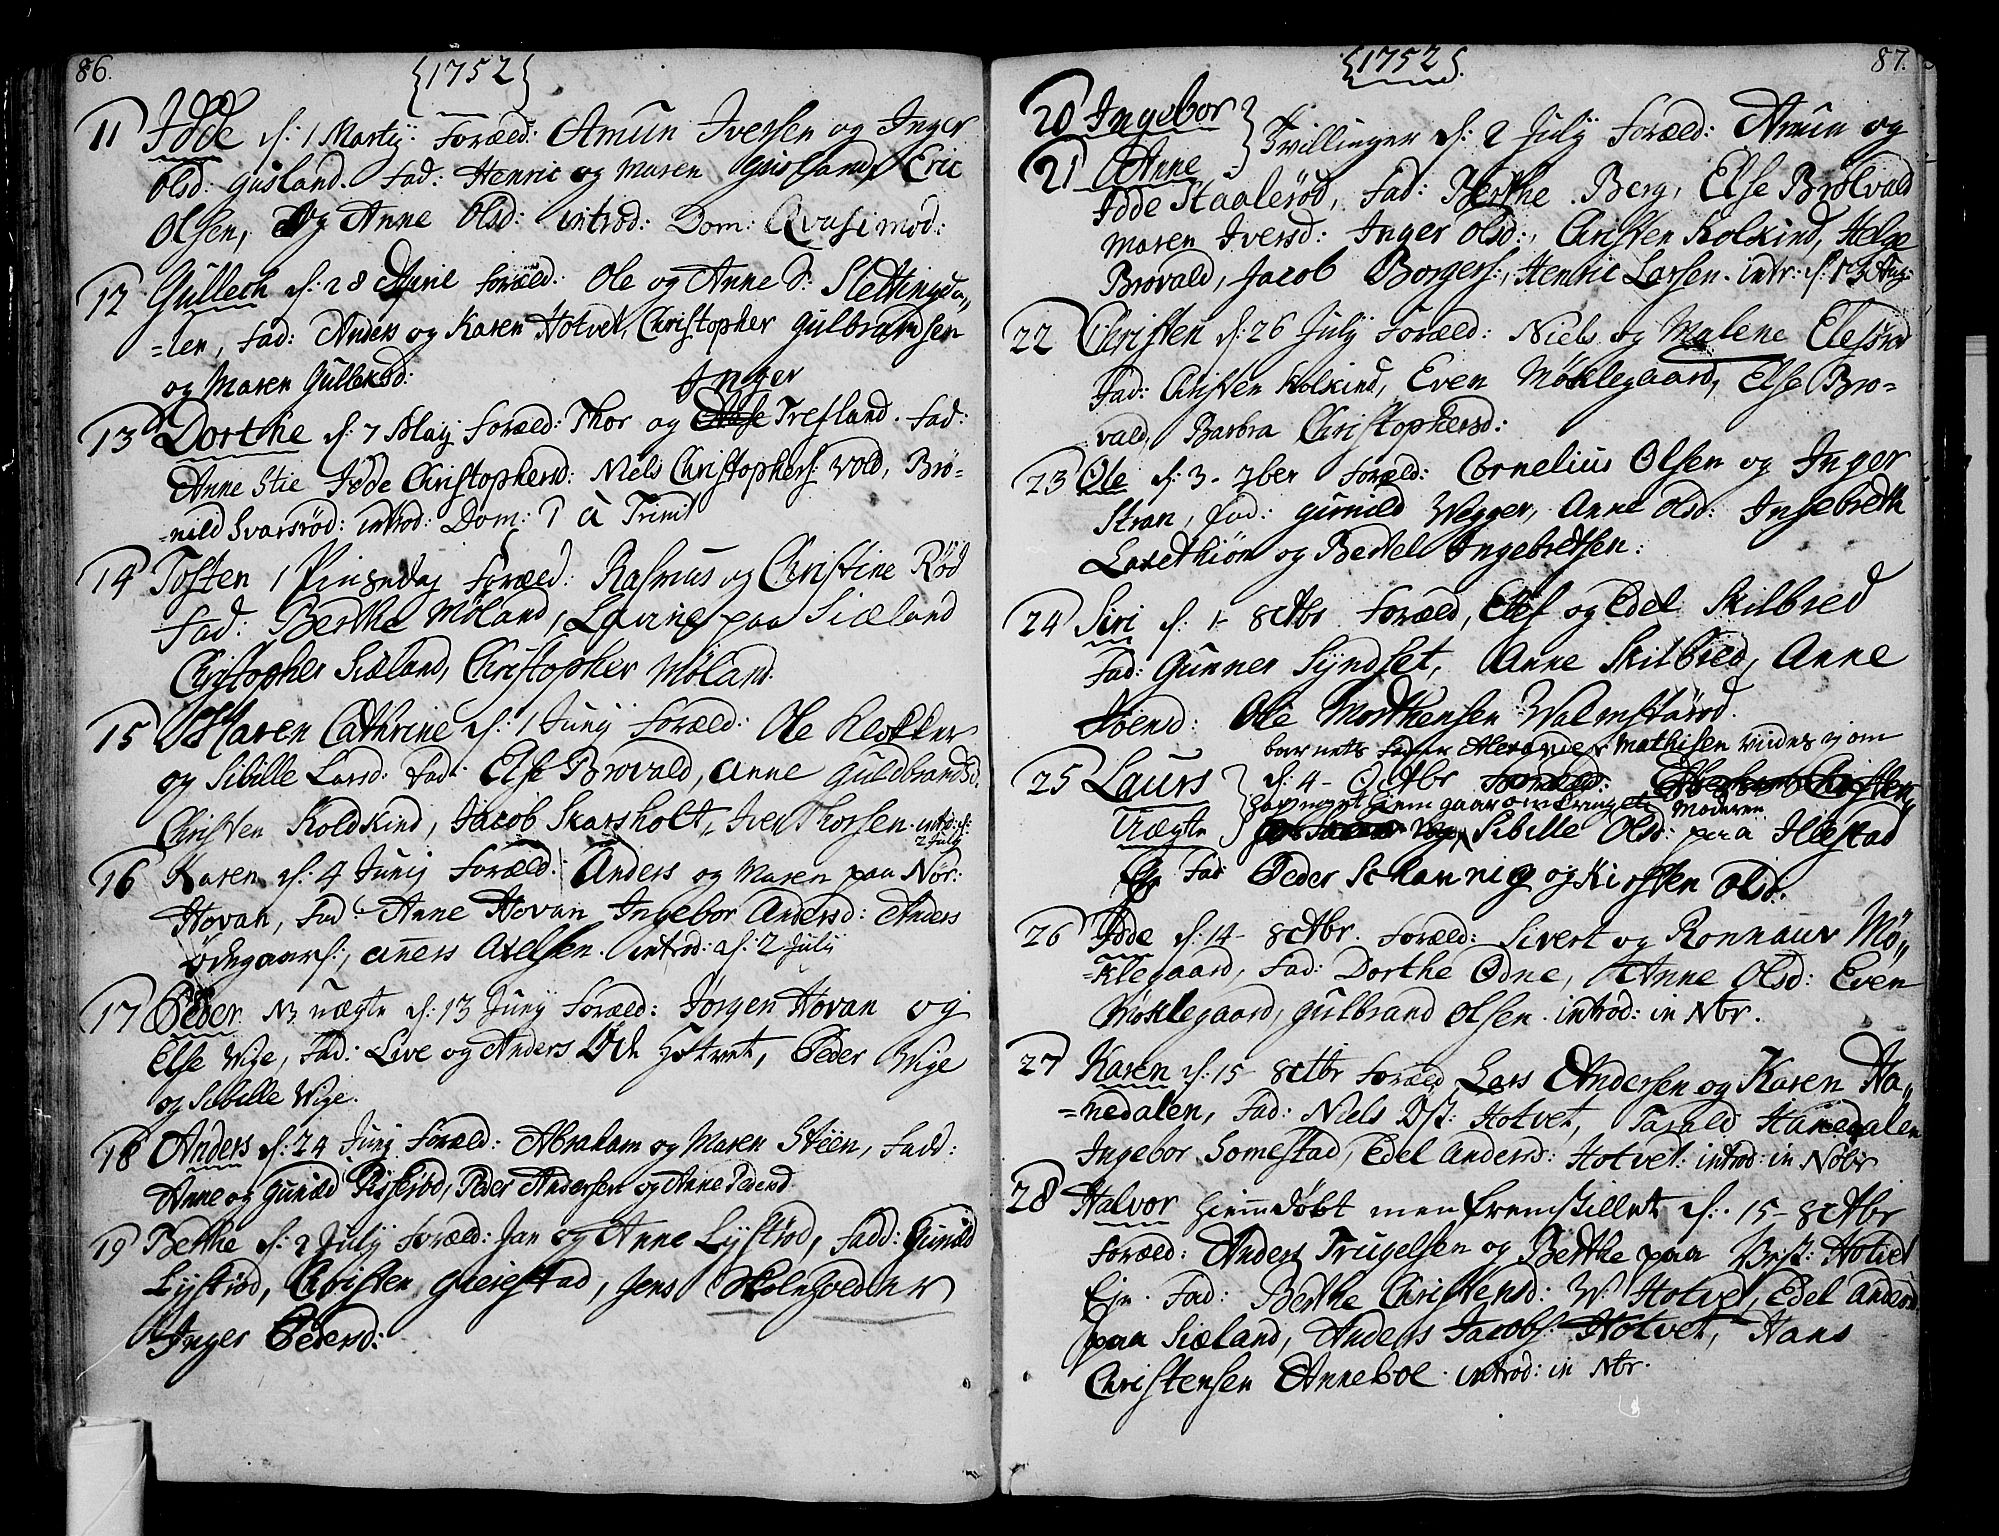 86.
{1752}
11 Idde d: 1 Martij. Foræld: Amun Iversen og Inger
Olsd: Gusland. Fad: Henric og Maren Gusland, Eric
Olsen, og Anne Olsd: introd: Dom: Qvasimod:
12 Gullech d: 28 Foræld: Ole og Anne S: Slettingda„
=len, Fad: Anders og Karen Hotvet, Christopher Gulbransen
og Maren Gulleksd:
Inger
13 Dorthe d: 7 Maij Foræld: Thor og Trefland. Fad:
Anne Stie Idde Christophersd: Niels Christophers: Vold, Brø-
=nild Svarsrød: introd: Dom: 1 à Trinit
14 Tosten 1 Pinsedag Foræld: Rasmus og Christine Rød
Fad: Berthe Møland, paa Siæland
Christopher Siæland, Christopher Møland.
15 Maren Cathrine d: 1 Junij Foræld: Ole Klokker
og Sibille Larsd: Fad: Else Brovald, Anne Guldbrandsd.
Christen Koldkind, Jacob Skarsholt, Iver Thorsen. introd: d:
2 July
16 Karen d: 4 Junij Foræld: Anders og Maren paa Nør:
Hovan, Fad: Anne Hovan Ingebor Andersd: Anders
Ødegaars:, Aners Axelsen. introd: d: 2 Julij
17 Peder NB uægte d: 13 Junij Foræld: Jørgen Hovan og
Else Vige, Fad: Live og Anders Hotvet, Peder Vige
og Sibille Vige.
18 Anders d: 24 Junij Foræld: Abraham og Maren Steen, Fadd:
Anne og Gunild, Peder Andersen og Anne Pedersd
19 Berthe d: 2 July Foræld: Jan og Anne Lystrød, Fadd: Gunild
Lystrød, Christen Gleiestad, Jens
Inger Pedersd:
87.
{1752}
20 Ingebor
21 Anne } Tvillinger d: 2 Julij Foræld: Amun og
Idde Staalerød, Fad: Berthe Berg, Else Brovald
Maren Iversd: Inger Olsd:, Christen Kolkind, Helge
Brovald, Jacob Borgers:, Henric Larsen. intr: d: 13 Aug:
22 Christen d: 26 Julij Foræld: Niels og Malene Elesrød
Fad: Christen Kolkind, Even Møklegaard, Else Bro-
vald, Barbra Christophersd:
23 Ole d: 3- 7ber Foræld: Cornelius Olsen og Inger
Stran, Fad: Gunild Wegger, Anne Olsd: Ingebreth
og Bertel Ingebretsen:
24 Siri d: 1- 8ctbr Foræld, Elef og Edel Skilbred
Fad: Gunner Syndset, Anne Skilbred, Anne
Joensd: Ole Morthensen Valmstørød.
barnets Fader Alexander Mathisen vides ej om
25 Laurs d: 4- Octbr
hiem gaar omkring
Moderen
Uægte Sibille Olsd: paa Illestad
Fad Peder Schavnig og Kirsten Olsd.
26 Idde d: 14- 8ctbr. Foræld: Sivert og Ronnaur Mø„
=klegaard, Fad: Dorthe Odne, Anne Olsd: Even
Møklegaard, Gulbrand Olsen. introd: in Nbr.
27 Karen d: 15- 8ctbr Foræld Lars Andersen og Karen Ha„
=nedalen, Fad: Niels Øst: Hotvet, Tarald Hanedalen
Ingebor Somestad, Edel Andersd: Hotvet: introd: in Nobr
28 Halvor hiemdøbt men fremstillet d: 15- 8ctbr
Foræld: Anders Trugelsen og Berthe paa Hotvet
Eje. Fad: Berthe Christensd: V: Hotvet, Edel Andersd
paa Siæland, Anders Jacobs: Hotvet, Hans
Christensen Anneboe. introd: in Nbr.